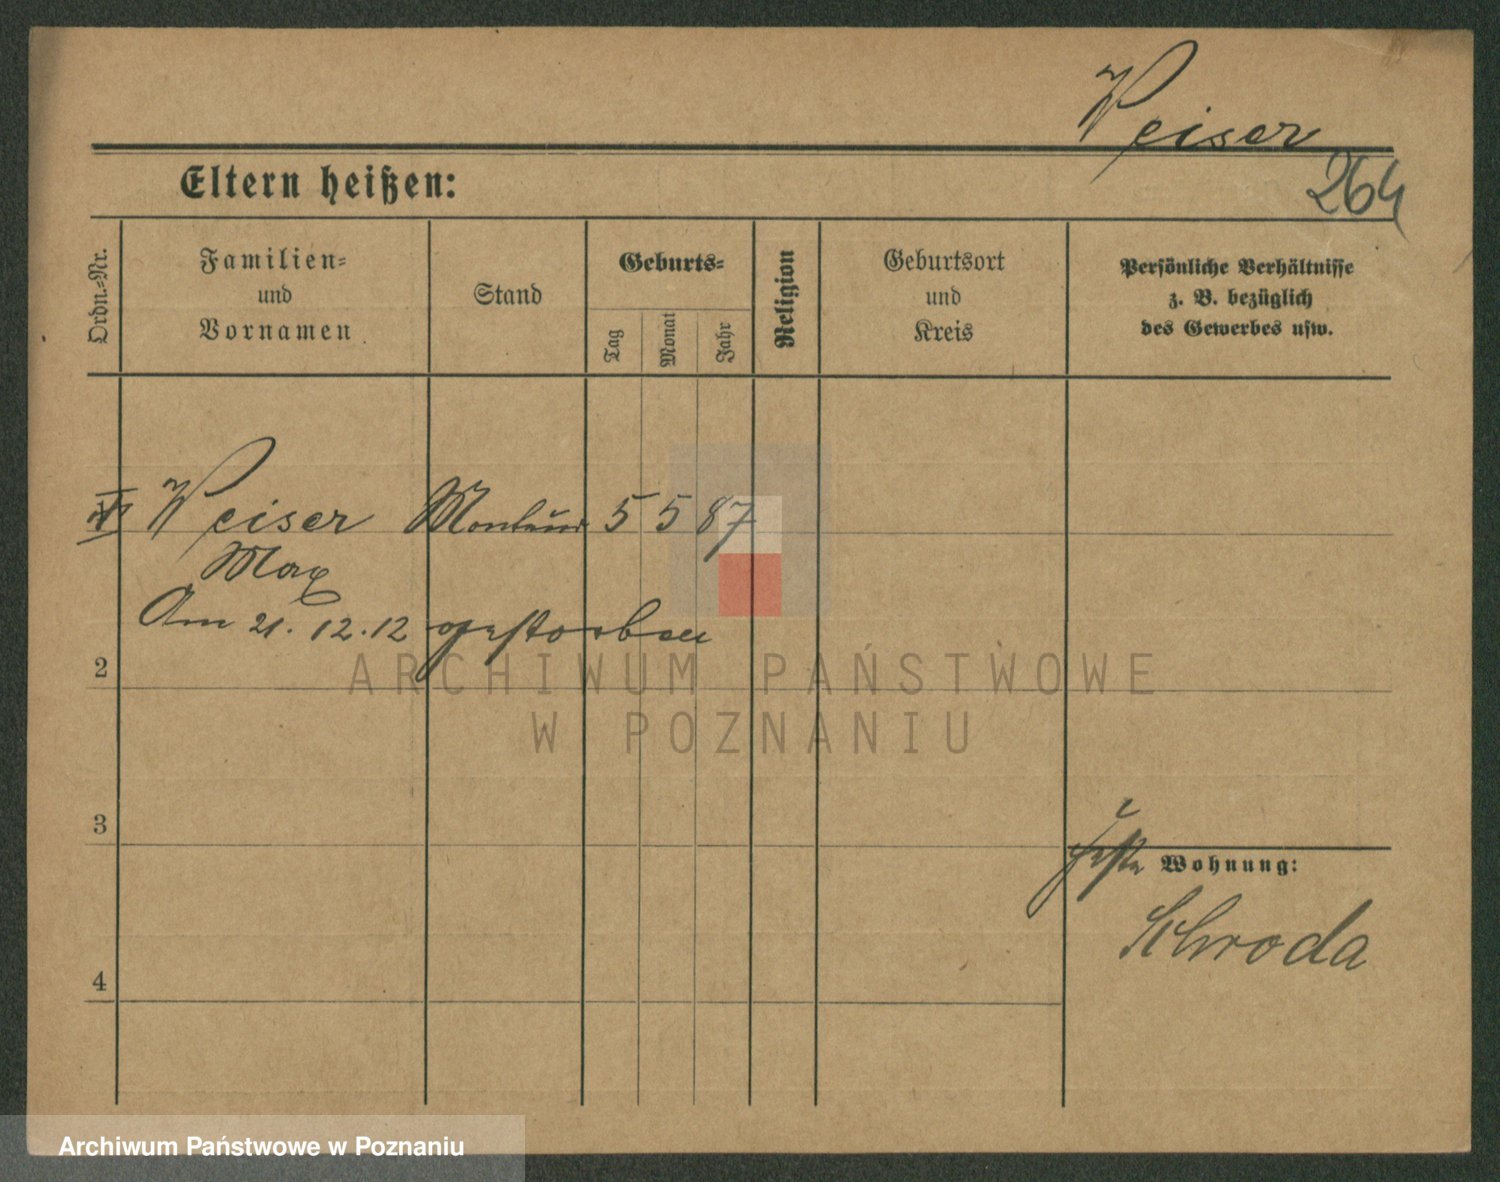 Weiser
Eltern heißen:
264
Ordn.-Nr.
Familien-
und
Vornamen
Stand
Geburts-
Tag
Monat
Jahr
Religion
Geburtsort
und
Kreis
Persönliche Verhältnisse
z. B. bezüglich
des Gewerbes usw.
Weiser Monteur 5 5 87
Max
Am 21.12.12 gestorben
2
ARCHIWUM PAŃSTWOWE
W POZNANIU
3
Wohnung:
Schroda
4
Archiwum Państwowe w Poznaniu